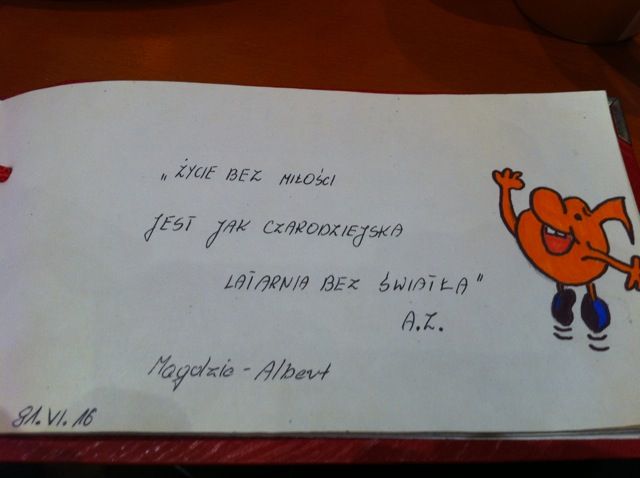 „ŻYCIE BEZ MIŁOŚCI
JEST JAK CZARODZIEJSKA
LATARNIA BEZ ŚWIATŁA"
A.Z.
Magdzie - Albert
81.VI.16